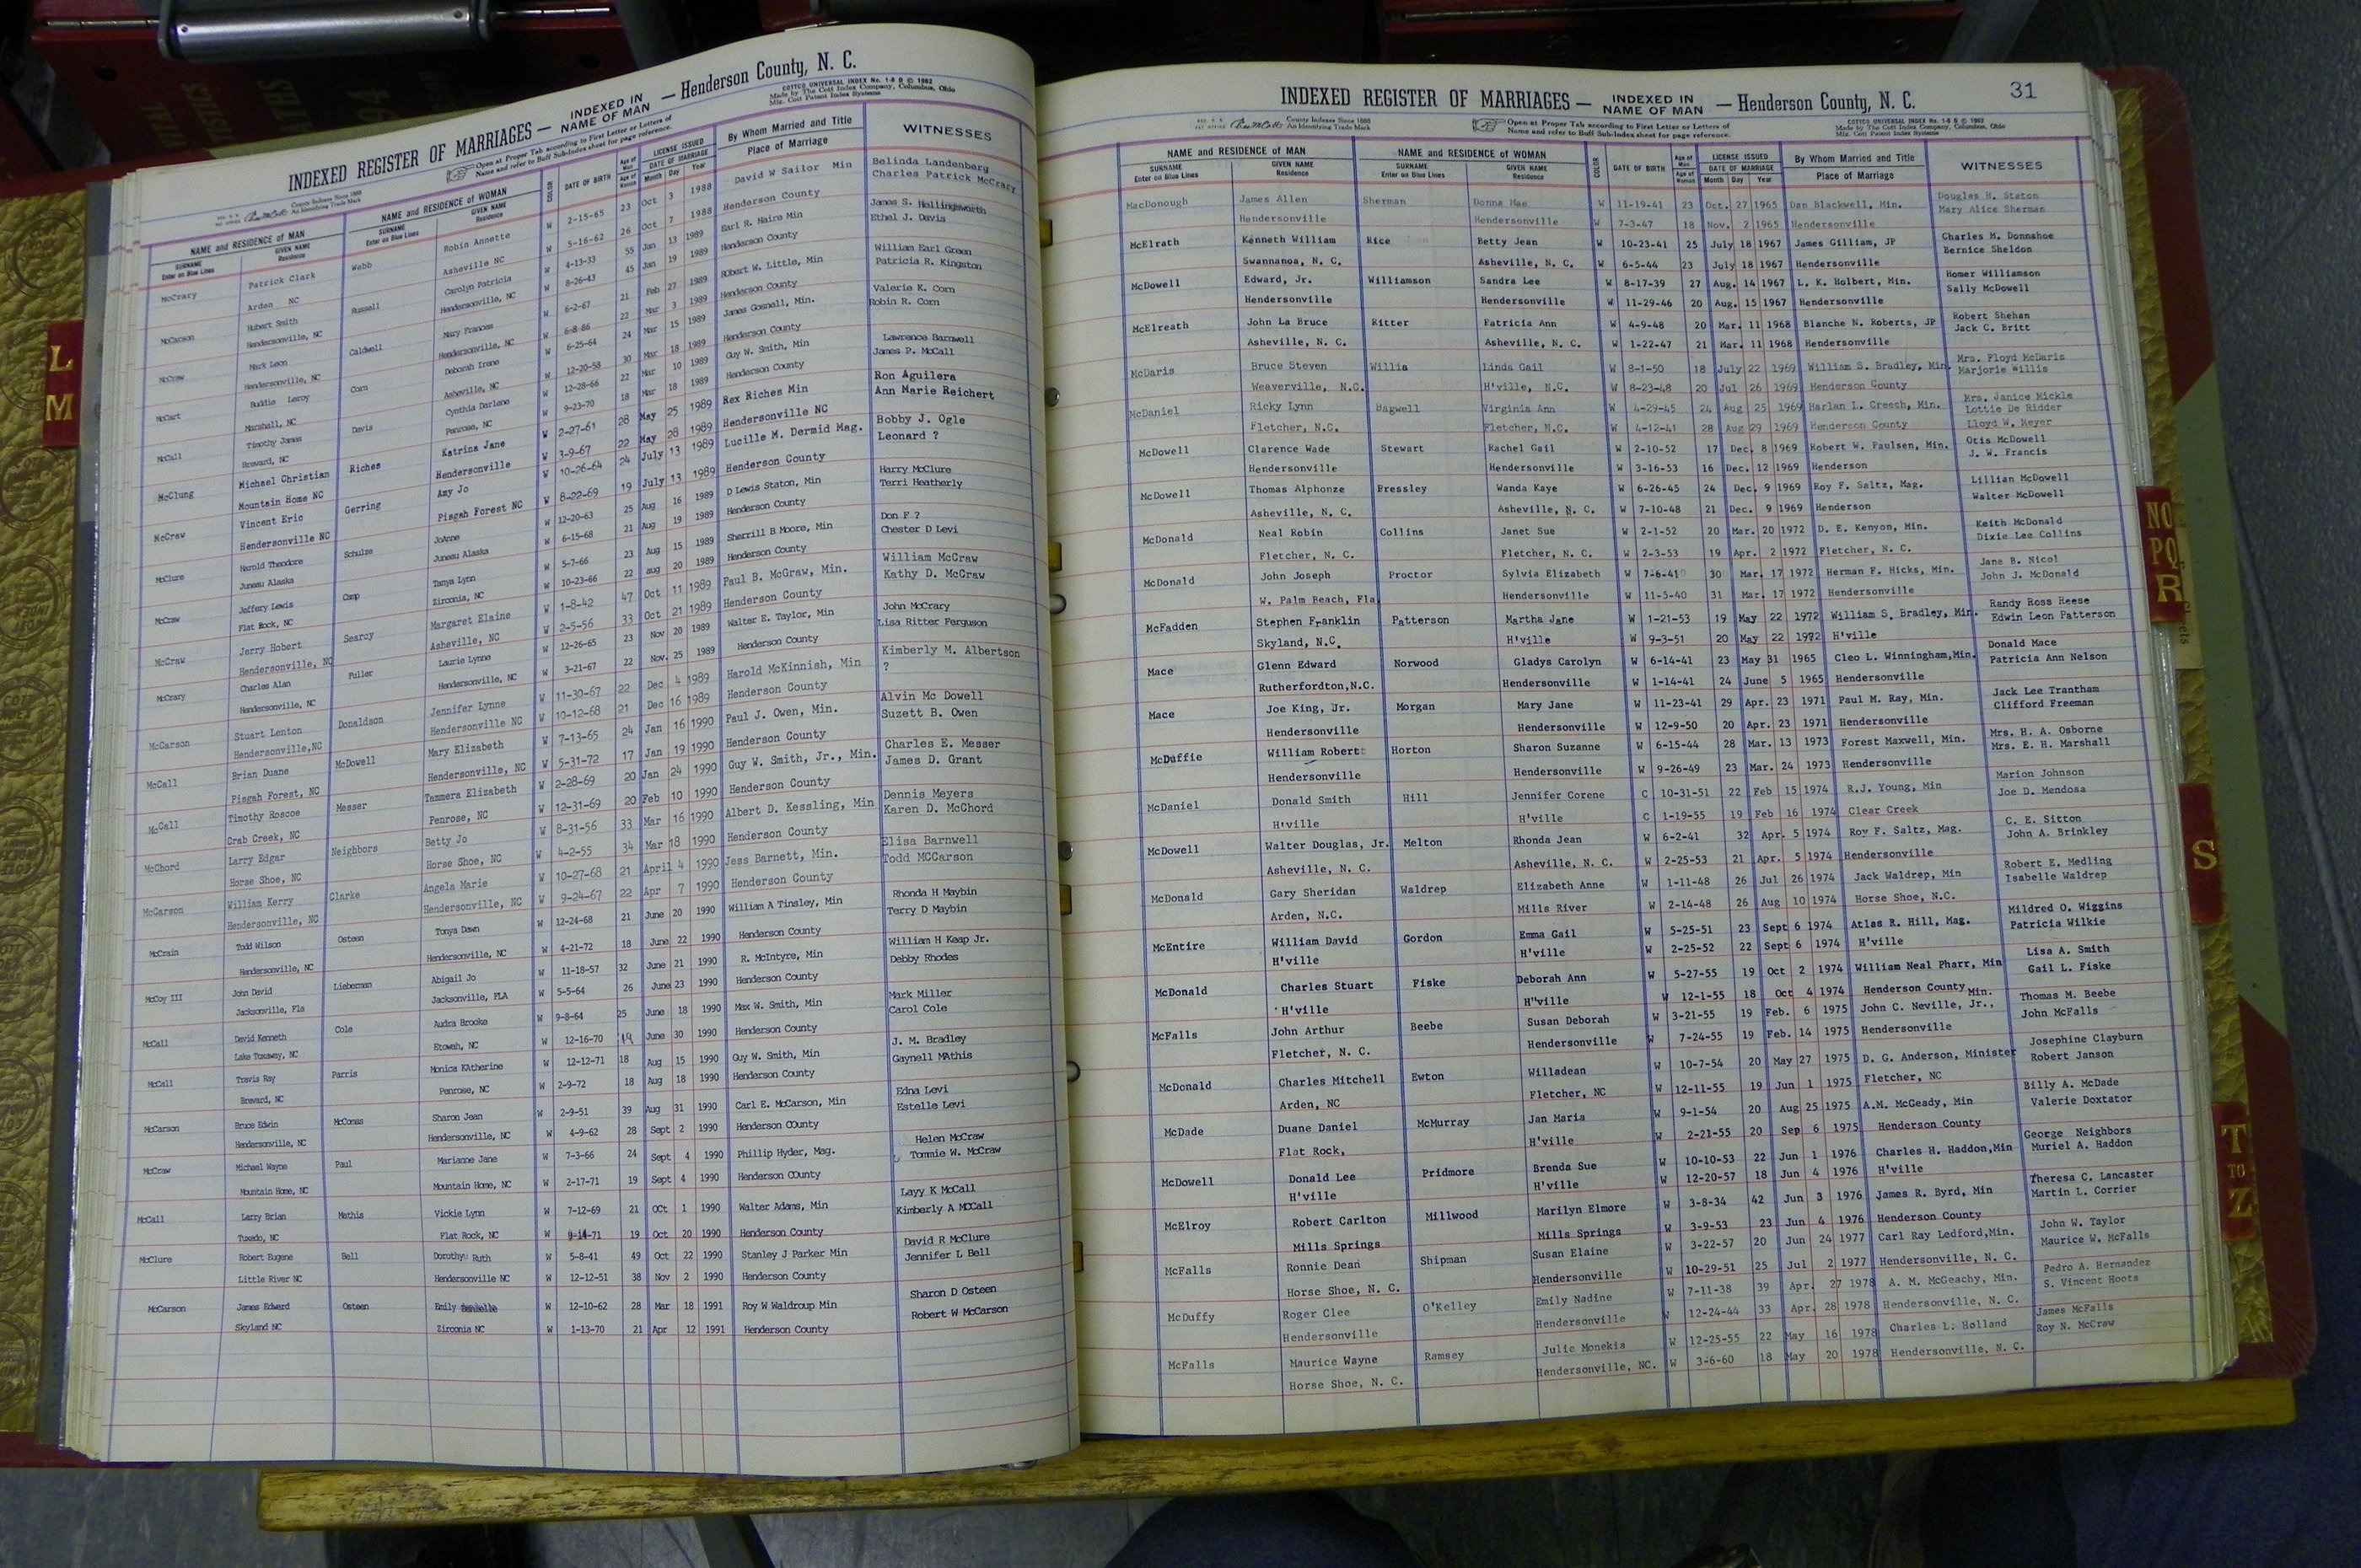 INDEXED REGISTER OF MARRIAGES — INDEXED IN NAME OF MAN — Henderson County, N. C.
COTTCO UNIVERSAL INDEX No. 1-6 D © 1962
Made by The Cott Index Company, Columbus, Ohio
Mfg. Cott Patent Index Systems
County Indexes Since 1888
An Identifying Trade Mark
Open at Proper Tab according to First Letter or Letters of
Name and refer to Buff Sub-Index sheet for page reference.
NAME and RESIDENCE OF MAN NAME and RESIDENCE OF WOMAN COLOR DATE OF BIRTH Age of Man Age of Woman LICENSE ISSUED DATE OF MARRIAGE By Whom Married and Title WITNESSES
SURNAME Enter on Blue Lines GIVEN NAME Residence SURNAME Enter on Blue Lines GIVEN NAME Residence Month Day Year Place of Marriage
McCrary Patrick Clark Webb Robin Annette W 2-15-65 23 Oct 3 1988 David W Sailor Min Belinda Landenberg
Arden NC Asheville NC W 5-16-62 26 Oct 7 1988 Henderson County Charles Patrick McCrary
McCarson Hubert Smith Russell Carolyn Patricia W 4-13-33 55 Jan 13 1989 Earl R. Haire Min James S. Hollingsworth
Hendersonville, NC Hendersonville, NC W 8-26-43 45 Jan 19 1989 Henderson County Ethel J. Davis
McCraw Mark Leon Caldwell Mary Frances W 6-2-67 21 Feb 27 1989 Robert W. Little, Min William Earl Green
Hendersonville, NC Hendersonville, NC W 6-8-66 22 Mar 3 1989 Henderson County Patricia R. Kingston
McCart Buddie Leroy Corn Deborah Irene W 6-25-64 24 Mar 15 1989 James Gosnell, Min. Valerie K. Corn
Marshall, NC Asheville, NC W 12-20-58 30 Mar 18 1989 Henderson County Robin R. Corn
McCall Timothy James Davis Cynthia Darlene W 12-28-66 22 Mar 10 1989 Guy W. Smith, Min Lawrence Barnwell
Brevard, NC Penrose, NC W 9-23-70 18 Mar 18 1989 Henderson County James P. McCall
McClung Michael Christian Riches Katrina Jane W 2-27-61 28 May 25 1989 Rex Riches Min Ron Aguilera
Mountain Home NC Hendersonville W 3-9-67 22 May 28 1989 Hendersonville NC Ann Marie Reichert
McCraw Vincent Eric Gerring Amy Jo W 10-26-64 24 July 13 1989 Lucille M. Dermid Mag. Bobby J. Ogle
Hendersonville NC Pisgah Forest NC W 8-22-69 19 July 13 1989 Henderson County Leonard ?
McClure Harold Theodore Schulze JoAnne W 12-20-63 25 Aug 16 1989 D Lewis Staton, Min Harry McClure
Juneau Alaska Juneau Alaska W 6-15-68 21 Aug 19 1989 Henderson County Terri Heatherly
McCraw Jeffery Lewis Camp Tanya Lynn W 5-7-66 23 Aug 15 1989 Sherrill B Moore, Min Don F ?
Flat Rock, NC Zirconia, NC W 10-23-66 22 aug 20 1989 Henderson County Chester D Levi
McCraw Jerry Hobert Searcy Margaret Elaine W 1-8-42 47 Oct 11 1989 Paul B. McGraw, Min. William McCraw
Hendersonville, NC Asheville, NC W 2-5-56 33 Oct 21 1989 Henderson County Kathy D. McCraw
McCrary Charles Alan Fuller Laurie Lynne W 12-26-65 23 Nov 20 1989 Walter E. Taylor, Min John McCrary
Hendersonville, NC Hendersonville, NC W 3-21-67 22 Nov. 25 1989 Henderson County Lisa Ritter Ferguson
McCarson Stuart Lenton Donaldson Jennifer Lynne W 11-30-67 22 Dec 4 1989 Harold McKinnish, Min Kimberly M. Albertson
Hendersonville,NC Hendersonville NC W 10-12-68 21 Dec 16 1989 Henderson County ?
McCall Brian Duane McDowell Mary Elizabeth W 7-13-65 24 Jan 16 1990 Paul J. Owen, Min. Alvin Mc Dowell
Pisgah Forest, NC Hendersonville, NC W 5-31-72 17 Jan 19 1990 Henderson County Suzett B. Owen
McCall Timothy Roscoe Messer Tammera Elizabeth W 2-28-69 20 Jan 24 1990 Guy W. Smith, Jr., Min. Charles E. Messer
Crab Creek, NC Penrose, NC W 12-31-69 20 Feb 10 1990 Henderson County James D. Grant
McChord Larry Edgar Neighbors Betty Jo W 8-31-56 33 Mar 16 1990 Albert D. Kessling, Min Dennis Meyers
Horse Shoe, NC Horse Shoe, NC W 4-2-55 34 Mar 18 1990 Henderson County Karen D. McChord
McCarson William Kerry Clarke Angela Marie W 10-27-68 21 April 4 1990 Jess Barnett, Min. Elisa Barnwell
Hendersonville, NC Hendersonville, NC W 9-24-67 22 Apr 7 1990 Henderson County Todd MCCarson
McCrain Todd Wilson Osteen Tonya Dawn W 12-24-68 21 June 20 1990 William A Tinsley, Min Rhonda H Maybin
Hendersonville, NC Hendersonville, NC W 4-21-72 18 June 22 1990 Henderson County Terry D Maybin
McCoy III John David Lieberman Abigail Jo W 11-18-57 32 June 21 1990 R. McIntyre, Min William H Keap Jr.
Jacksonville, Fla Jacksonville, FLA W 5-5-64 26 June 23 1990 Henderson County Debby Rhodes
McCall David Kenneth Cole Audra Brooke W 9-8-64 25 June 18 1990 Max W. Smith, Min Mark Miller
Lake Toxaway, NC Etowah, NC W 12-16-70 19 June 30 1990 Henderson County Carol Cole
McCall Travis Ray Parris Monica KAtherine W 12-12-71 18 Aug 15 1990 Guy W. Smith, Min J. M. Bradley
Brevard, NC Penrose, NC W 2-9-72 18 Aug 18 1990 Henderson County Gaynell MAthis
McCarson Bruce Edwin McComas Sharon Jean W 2-9-51 39 Aug 31 1990 Carl E. McCarson, Min Edna Levi
Hendersonville, NC Hendersonville, NC W 4-9-62 28 Sept 2 1990 Henderson COunty Estelle Levi
McCraw Michael Wayne Paul Marianne Jane W 7-3-66 24 Sept 4 1990 Phillip Hyder, Mag. Helen McCraw
Mountain Home, NC Mountain Home, NC W 2-17-71 19 Sept 4 1990 Henderson COunty Tommie W. McCraw
McCall Larry Brian Mathis Vickie Lynn W 7-12-69 21 OCt 1 1990 Walter Adams, Min Layy K McCall
Tuxedo, NC Flat Rock, NC W 9-14-71 19 Oct 20 1990 Henderson County Kimberly A MCCall
McClure Robert Eugene Bell Dorothy Ruth W 5-8-41 49 Oct 22 1990 Stanley J Parker Min David R McClure
Little River NC Hendersonville NC W 12-12-51 38 Nov 2 1990 Henderson County Jennifer L Bell
McCarson James Edward Osteen Emily W 12-10-62 28 Mar 18 1991 Roy W Waldroup Min Sharon D Osteen
Skyland NC Zirconia NC W 1-13-70 21 Apr 12 1991 Henderson County Robert W McCarson
31
INDEXED REGISTER OF MARRIAGES — INDEXED IN NAME OF MAN — Henderson County, N. C.
County Indexes Since 1888
An Identifying Trade Mark
Open at Proper Tab according to First Letter or Letters of
Name and refer to Buff Sub-Index sheet for page reference.
COTTCO UNIVERSAL INDEX No. 1-6 D © 1962
Made by The Cott Index Company, Columbus, Ohio
Mfg. Cott Patent Index Systems
NAME and RESIDENCE OF MAN NAME and RESIDENCE OF WOMAN COLOR DATE OF BIRTH Age of Man Age of Woman LICENSE ISSUED DATE OF MARRIAGE By Whom Married and Title WITNESSES
SURNAME Enter on Blue Lines GIVEN NAME Residence SURNAME Enter on Blue Lines GIVEN NAME Residence Month Day Year Place of Marriage
MacDonough James Allen Sherman Donna Mae W 11-19-41 23 Oct. 27 1965 Dan Blackwell, Min. Douglas H. Staton
Hendersonville Hendersonville W 7-3-47 18 Nov. 2 1965 Hendersonville Mary Alice Sherman
McElrath Kenneth William Rice Betty Jean W 10-23-41 25 July 18 1967 James Gilliam, JP Charles M. Donnahoe
Swannanoa, N. C. Asheville, N. C. W 6-5-44 23 July 18 1967 Hendersonville Bernice Sheldon
McDowell Edward, Jr. Williamson Sandra Lee W 8-17-39 27 Aug. 14 1967 L. K. Holbert, Min. Homer Williamson
Hendersonville Hendersonville W 11-29-46 20 Aug. 15 1967 Hendersonville Sally McDowell
McElreath John La Bruce Ritter Patricia Ann W 4-9-48 20 Mar. 11 1968 Blanche N. Roberts, JP Robert Shehan
Asheville, N. C. Asheville, N. C. W 1-22-47 21 Mar. 11 1968 Hendersonville Jack C. Britt
McDaris Bruce Steven Willis Linda Gail W 8-1-50 18 July 22 1969 William S. Bradley, Min. Mrs. Floyd McDaris
Weaverville, N.C. H'ville, N.C. W 8-23-48 20 Jul 26 1969 Henderson County Marjorie Willis
McDaniel Ricky Lynn Bagwell Virginia Ann W 4-29-45 24 Aug 25 1969 Harlan L. Creech, Min. Mrs. Janice Mickle
Lottie De Ridder
Fletcher, N.C. Fletcher, N.C. W 4-12-41 28 Aug 29 1969 Henderson County Lloyd W. Meyer
McDowell Clarence Wade Stewart Rachel Gail W 2-10-52 17 Dec. 8 1969 Robert W. Paulsen, Min. Otis McDowell
Hendersonville Hendersonville W 3-16-53 16 Dec. 12 1969 Henderson J. W. Francis
McDowell Thomas Alphonze Pressley Wanda Kaye W 6-26-45 24 Dec. 9 1969 Roy F. Saltz, Mag. Lillian McDowell
Asheville, N. C. Asheville, N. C. W 7-10-48 21 Dec. 9 1969 Henderson Walter McDowell
McDonald Neal Robin Collins Janet Sue W 2-1-52 20 Mar. 20 1972 D. E. Kenyon, Min. Keith McDonald
Fletcher, N. C. Fletcher, N. C. W 2-3-53 19 Apr. 2 1972 Fletcher, N. C. Dixie Lee Collins
McDonald John Joseph Proctor Sylvia Elizabeth W 7-6-41 30 Mar. 17 1972 Herman F. Hicks, Min. Jane B. Nicol
W. Palm Beach, Fla. Hendersonville W 11-5-40 31 Mar. 17 1972 Hendersonville John J. McDonald
McFadden Stephen Franklin Patterson Martha Jane W 1-21-53 19 May 22 1972 William S. Bradley, Min. Randy Ross Reese
Skyland, N.C. H'ville W 9-3-51 20 May 22 1972 H'ville Edwin Leon Patterson
Mace Glenn Edward Norwood Gladys Carolyn W 6-14-41 23 May 31 1965 Cleo L. Winningham,Min. Donald Mace
Rutherfordton,N.C. Hendersonville W 1-14-41 24 June 5 1965 Hendersonville Patricia Ann Nelson
Mace Joe King, Jr. Morgan Mary Jane W 11-23-41 29 Apr. 23 1971 Paul M. Ray, Min. Jack Lee Trantham
Hendersonville Hendersonville W 12-9-50 20 Apr. 23 1971 Hendersonville Clifford Freeman
McDuffie William Robert Horton Sharon Suzanne W 6-15-44 28 Mar. 13 1973 Forest Maxwell, Min. Mrs. H. A. Osborne
Hendersonville Hendersonville W 9-26-49 23 Mar. 24 1973 Hendersonville Mrs. E. H. Marshall
McDaniel Donald Smith Hill Jennifer Corene C 10-31-51 22 Feb 15 1974 R.J. Young, Min Marion Johnson
H'ville H'ville C 1-19-55 19 Feb 16 1974 Clear Creek Joe D. Mendosa
McDowell Walter Douglas, Jr. Melton Rhonda Jean W 6-2-41 32 Apr. 5 1974 Roy F. Saltz, Mag. C. E. Sitton
Asheville, N. C. Asheville, N. C. W 2-25-53 21 Apr. 5 1974 Hendersonville John A. Brinkley
McDonald Gary Sheridan Waldrep Elizabeth Anne W 1-11-48 26 Jul 26 1974 Jack Waldrep, Min Robert E. Medling
Arden, N.C. Mills River W 2-14-48 26 Aug 10 1974 Horse Shoe, N.C. Isabelle Waldrep
McEntire William David Gordon Emma Gail W 5-25-51 23 Sept 6 1974 Atlas R. Hill, Mag. Mildred O. Wiggins
H'ville H'ville W 2-25-52 22 Sept 6 1974 H'ville Patricia Wilkie
McDonald Charles Stuart Fiske Deborah Ann W 5-27-55 19 Oct 2 1974 William Neal Pharr, Min Lisa A. Smith
H'ville H"ville W 12-1-55 18 Oct 4 1974 Henderson County Gail L. Fiske
McFalls John Arthur Beebe Susan Deborah W 3-21-55 19 Feb. 6 1975 John C. Neville, Jr., Min. Thomas M. Beebe
Fletcher, N. C. Hendersonville W 7-24-55 19 Feb. 14 1975 Hendersonville John McFalls
McDonald Charles Mitchell Ewton Willadean W 10-7-54 20 May 27 1975 D. G. Anderson, Minister Josephine Clayburn
Arden, NC Fletcher, NC W 12-11-55 19 Jun 1 1975 Fletcher, NC Robert Janson
McDade Duane Daniel McMurray Jan Maria W 9-1-54 20 Aug 25 1975 A.M. McGeady, Min Billy A. McDade
Flat Rock, H'ville W 2-21-55 20 Sep 6 1975 Henderson County Valerie Doxtator
McDowell Donald Lee Pridmore Brenda Sue W 10-10-53 22 Jun 1 1976 Charles H. Haddon,Min George Neighbors
H'ville H'ville W 12-20-57 18 Jun 4 1976 H'ville Muriel A. Haddon
McElroy Robert Carlton Millwood Marilyn Elmore W 3-8-34 42 Jun 3 1976 James R. Byrd, Min Theresa C. Lancaster
Mills Springs Mills Springs W 3-9-53 23 Jun 4 1976 Henderson County Martin L. Corrier
McFalls Ronnie Dean Shipman Susan Elaine W 3-22-57 20 Jun 24 1977 Carl Ray Ledford,Min. John W. Taylor
Horse Shoe, N. C. Hendersonville W 10-29-51 25 Jul 2 1977 Hendersonville, N. C. Maurice W. McFalls
McDuffy Roger Clee O'Kelley Emily Nadine W 7-11-38 39 Apr. 27 1978 A. M. McGeachy, Min. Pedro A. Hernandez
Hendersonville Hendersonville W 12-24-44 33 Apr. 28 1978 Hendersonville, N. C. S. Vincent Hoots
McFalls Maurice Wayne Ramsey Julie Monekia W 12-25-55 22 May 16 1978 Charles L. Holland James McFalls
Horse Shoe, N. C. Hendersonville, NC. W 3-6-60 18 May 20 1978 Hendersonville, N. C. Roy N. McCraw
L
M
NO
PQ
R
S
T
TO
Z